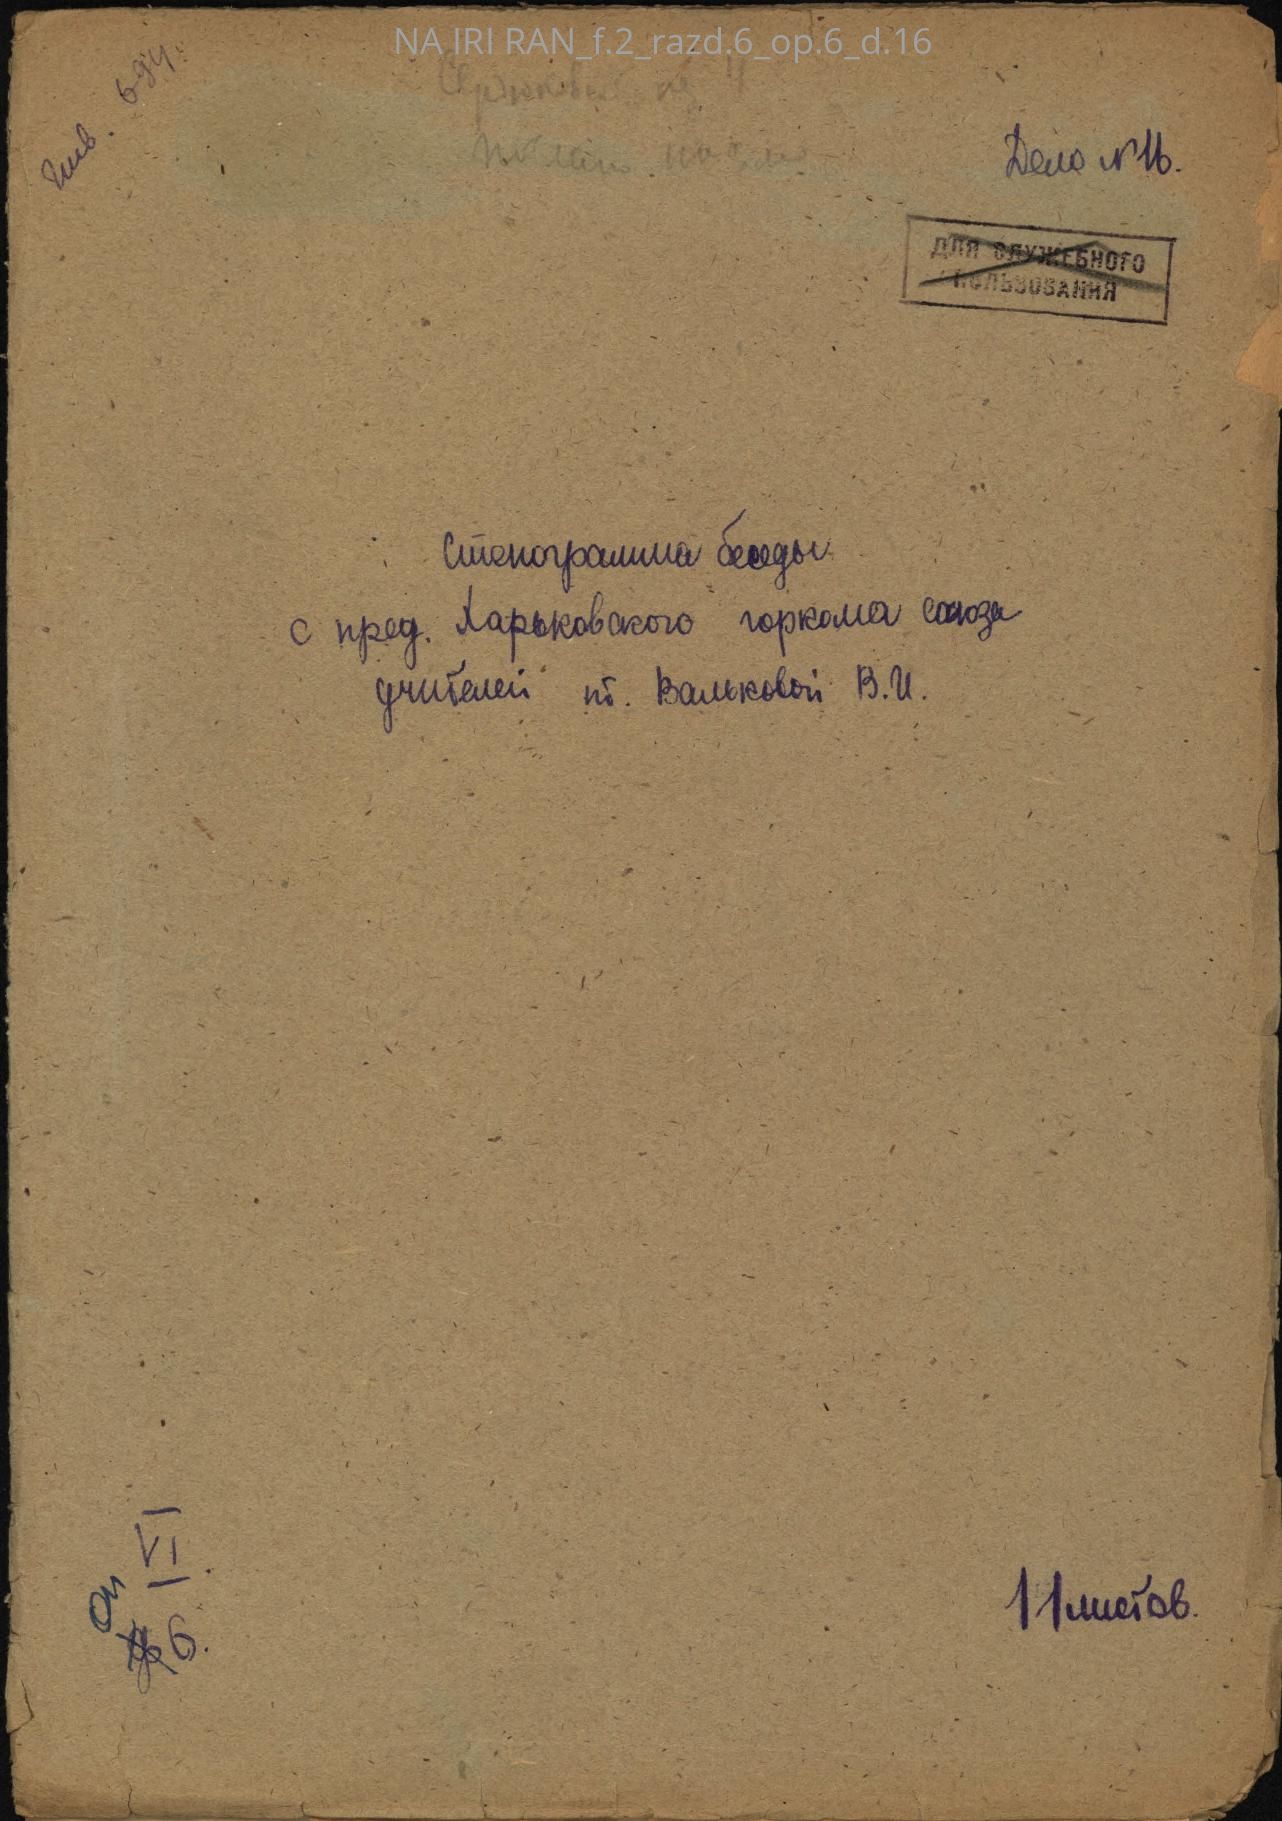 NA IRI RAN_f.2_razd.6_op.6_d.16
Инв.
Дело № 16.
ДЛЯ СЛУЖЕБНОГО
ПОЛЬЗОВАНИЯ
Стенограмма беседы
с пред. Харьковского горкома союза
учителей т. Вальковой В.И.
VI
оп
6.
11 листов.